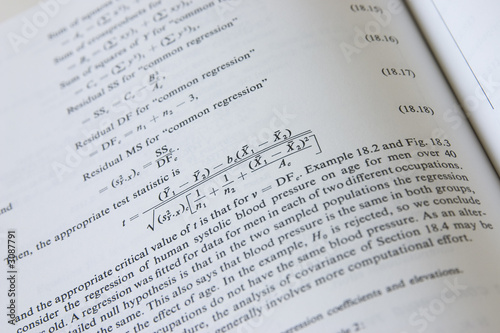 Sum of squares
Sum of crossproducts for
(18.15)
Sum of squares of Y for "common
(18.16)
Residual SS for "common regression"
= SS_c = C_c − B_c²/A_c
(18.17)
Residual DF for "common regression"
= DF_c = n₁ + n₂ − 3,
(18.18)
Residual MS for "common regression"
= (s²_Y·X)_c = SS_c/DF_c
then, the appropriate test statistic is
t = ((Ȳ₁ − Ȳ₂) − b_c(X̄₁ − X̄₂)) / √((s²_Y·X)_c [1/n₁ + 1/n₂ + (X̄₁ − X̄₂)²/A_c])
and the appropriate critical value of t is that for ν = DF_c. Example 18.2 and Fig. 18.3
consider the regression of human systolic blood pressure on age for men over 40
old. A regression was fitted for data for men in each of two different occupations.
tailed null hypothesis is that in the two sampled populations the regression
the same. This also says that blood pressure is the same in both groups,
the effect of age. In the example, H₀ is rejected, so we conclude
occupations do not have the same blood pressure. As an alter-
the analysis of covariance of Section 18.4 may be
generally involves more computational effort.
regression coefficients and elevations.
2:
Adobe Stock | #3087791